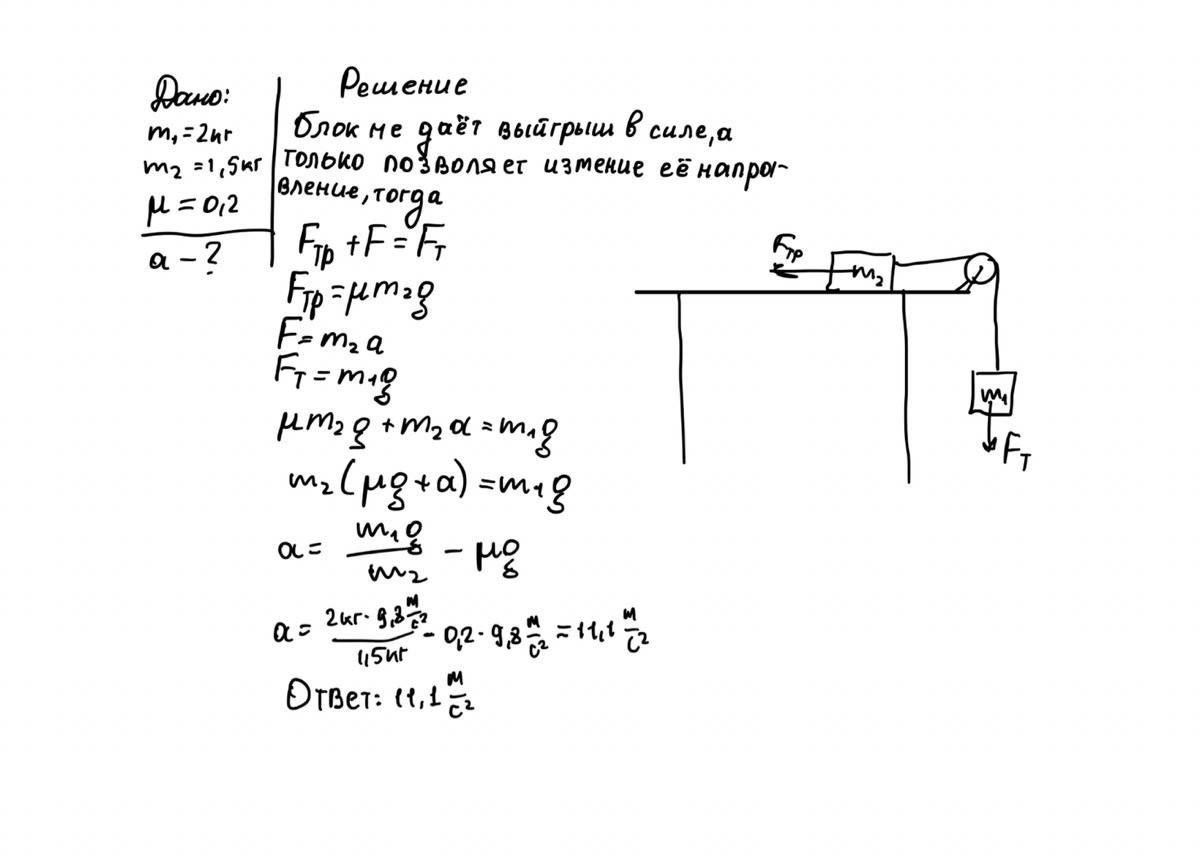 Дано:
m₁=2кг
m₂=1,5кг
μ=0,2
a-?
Решение
блок не даёт выйгрыш в силе, а
только позволяет измение её напра-
вление, тогда
Fтр+F=Fт
Fтр=μm₂g
F=m₂a
Fт=m₁g
μm₂g+m₂a=m₁g
m₂(μg+a)=m₁g
a=m₁g/m₂-μg
a=2кг·9,8м/с²/1,5кг-0,2·9,8м/с²=11,1м/с²
Ответ: 11,1м/с²
Fтр
m₂
m₁
Fт